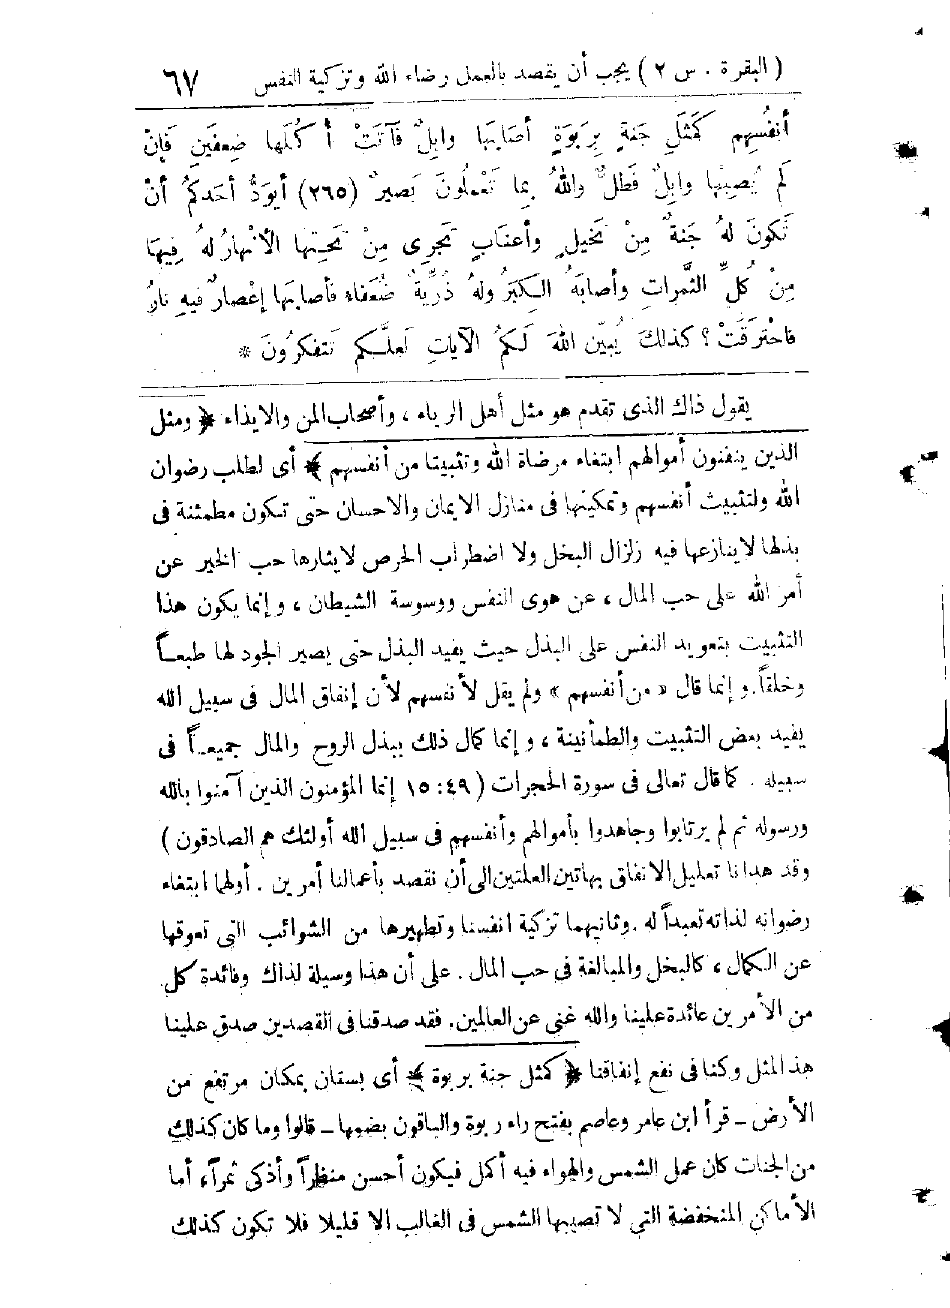 ( البقرة . س ٢ ) يجب أن يقصد بالعمل رضاء الله وتزكية النفس ٦٧
أنفُسِهم كَمَثَلِ جَنةٍ بِرَبوَةٍ أصَابَها وابِلٌ فآتَتْ أُكُلَها ضِعفَينِ فَإنْ
لَم يُصِبْها وابِلٌ فَطَلٌّ واللهُ بِما تَعْمَلُونَ بَصيرٌ (٢٦٥) أيوَدُّ أحَدكُمْ أنْ
تَكونَ لهُ جَنةٌ مِنْ نَخيلٍ وأعنَابٍ تَجرِى مِنْ تَحتِها الأنْهارُ لهُ فِيهَا
مِنْ كُلِّ الثَّمراتِ وأصابَهُ الكِبَرُ ولهُ ذُرِّيةٌ ضُعَفاء فأصابَها إعْصارٌ فيهِ نارٌ
فاحْترَقَتْ ؟ كذلكَ يُبَيّن اللهَ لَكمُ الآياتِ لَعلَّكم تَتفكرُونَ *
يقول ذاك الذى تقدم هو مثل أهل الرياء ، وأصحاب المن والايذاء ﴿ ومثل
الذين ينفقون أموالهم ابتغاء مرضاة الله وتثبيتا من أنفسهم ﴾ أى لطلب رضوان
الله ولتثبيث أنفسهم وتمكينها فى منازل الايمان والاحسان حتى تكون مطمئنة فى
بذلها لا ينازعها فيه زلزال البخل ولا اضطراب الحرص لايثارها حب الخير عن
أمر الله على حب المال ، عن هوى النفس ووسوسة الشيطان ، وإنما يكون هذا
التثبيت بتعويد النفس على البذل حيث يفيد البذل حتى يصير الجود لها طبعاً
وخلقاً. وإنما قال « من أنفسهم » ولم يقل لأنفسهم لأن إنفاق المال فى سبيل الله
يفيد بعض التثبيت والطمأنينة ، وإنما كمال ذلك ببذل الروح والمال جميعاً فى
سبيله . كما قال تعالى فى سورة الحجرات ( ٤٩ : ١٥ إنما المؤمنون الذين آمنوا بالله
ورسوله ثم لم يرتابوا وجاهدوا بأموالهم وأنفسهم فى سبيل الله أولئك هم الصادقون )
وقد هدانا تعليل الانفاق بهاتين العلتين الى أن نقصد بأعمالنا أمرين . أولهما ابتغاء
رضوانه لذاته تعبداً له . وثانيهما تزكية انفسنا وتطهيرها من الشوائب التى تعوقها
عن الكمال ، كالبخل والمبالغة فى حب المال . على أن هذا وسيلة لذاك وفائدة كل
من الأمرين عائدة علينا والله غنى عن العالمين. فقد صدقنا فى القصدين صدق علينا
هذ المثل وكنا فى نفع إنفاقنا ﴿ كمثل جنة بربوة ﴾ أى بستان بمكان مرتفع من
الأرض – قرأ ابن عامر وعاصم بفتح راء ربوة والباقون بضمها – قالوا وما كان كذلك
من الجنات كان عمل الشمس والهواء فيه أكمل فيكون أحسن منظراً وأذكى ثمرآ، أما
الأماكن المنخفضة التي لا تصيبها الشمس فى الغالب الا قليلا فلا تكون كذلك